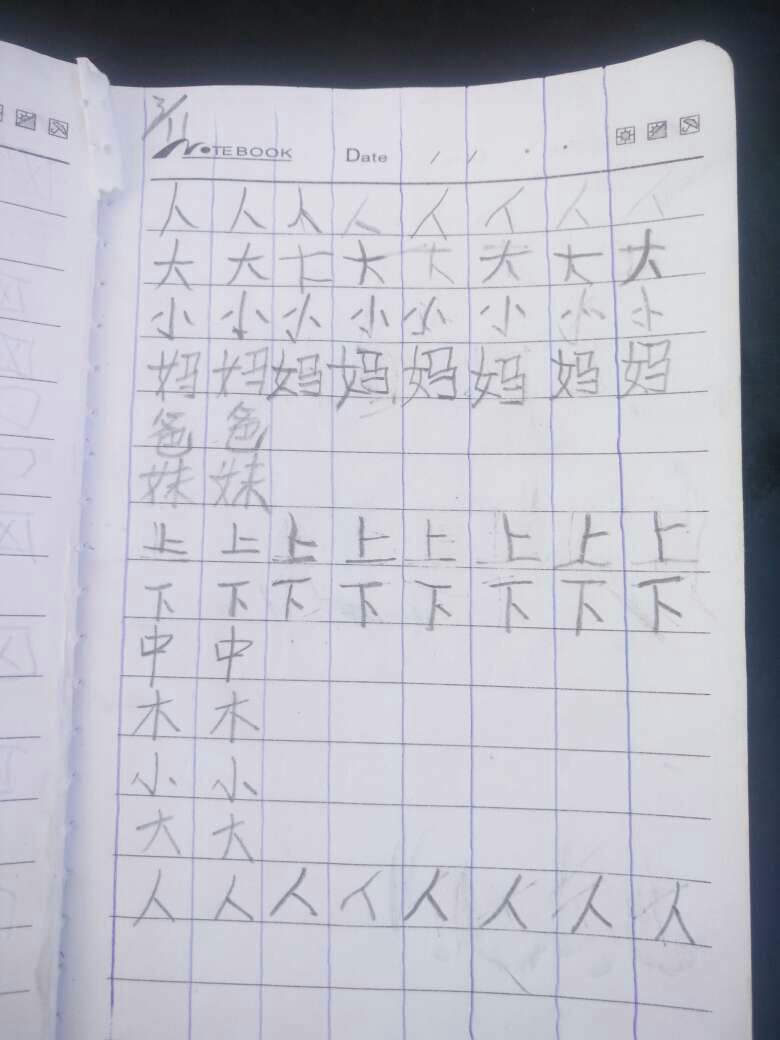 3/11
NOTEBOOK Date / /
人 人 人 人 人 人 人 人
大 大 大 大 大 大 大 大
小 小 小 小 小 小 小 小
妈 妈 妈 妈 妈 妈 妈 妈
爸 爸
妹 妹
上 上 上 上 上 上 上 上
下 下 下 下 下 下 下 下
中 中
木 木
小 小
大 大
人 人 人 人 人 人 人 人